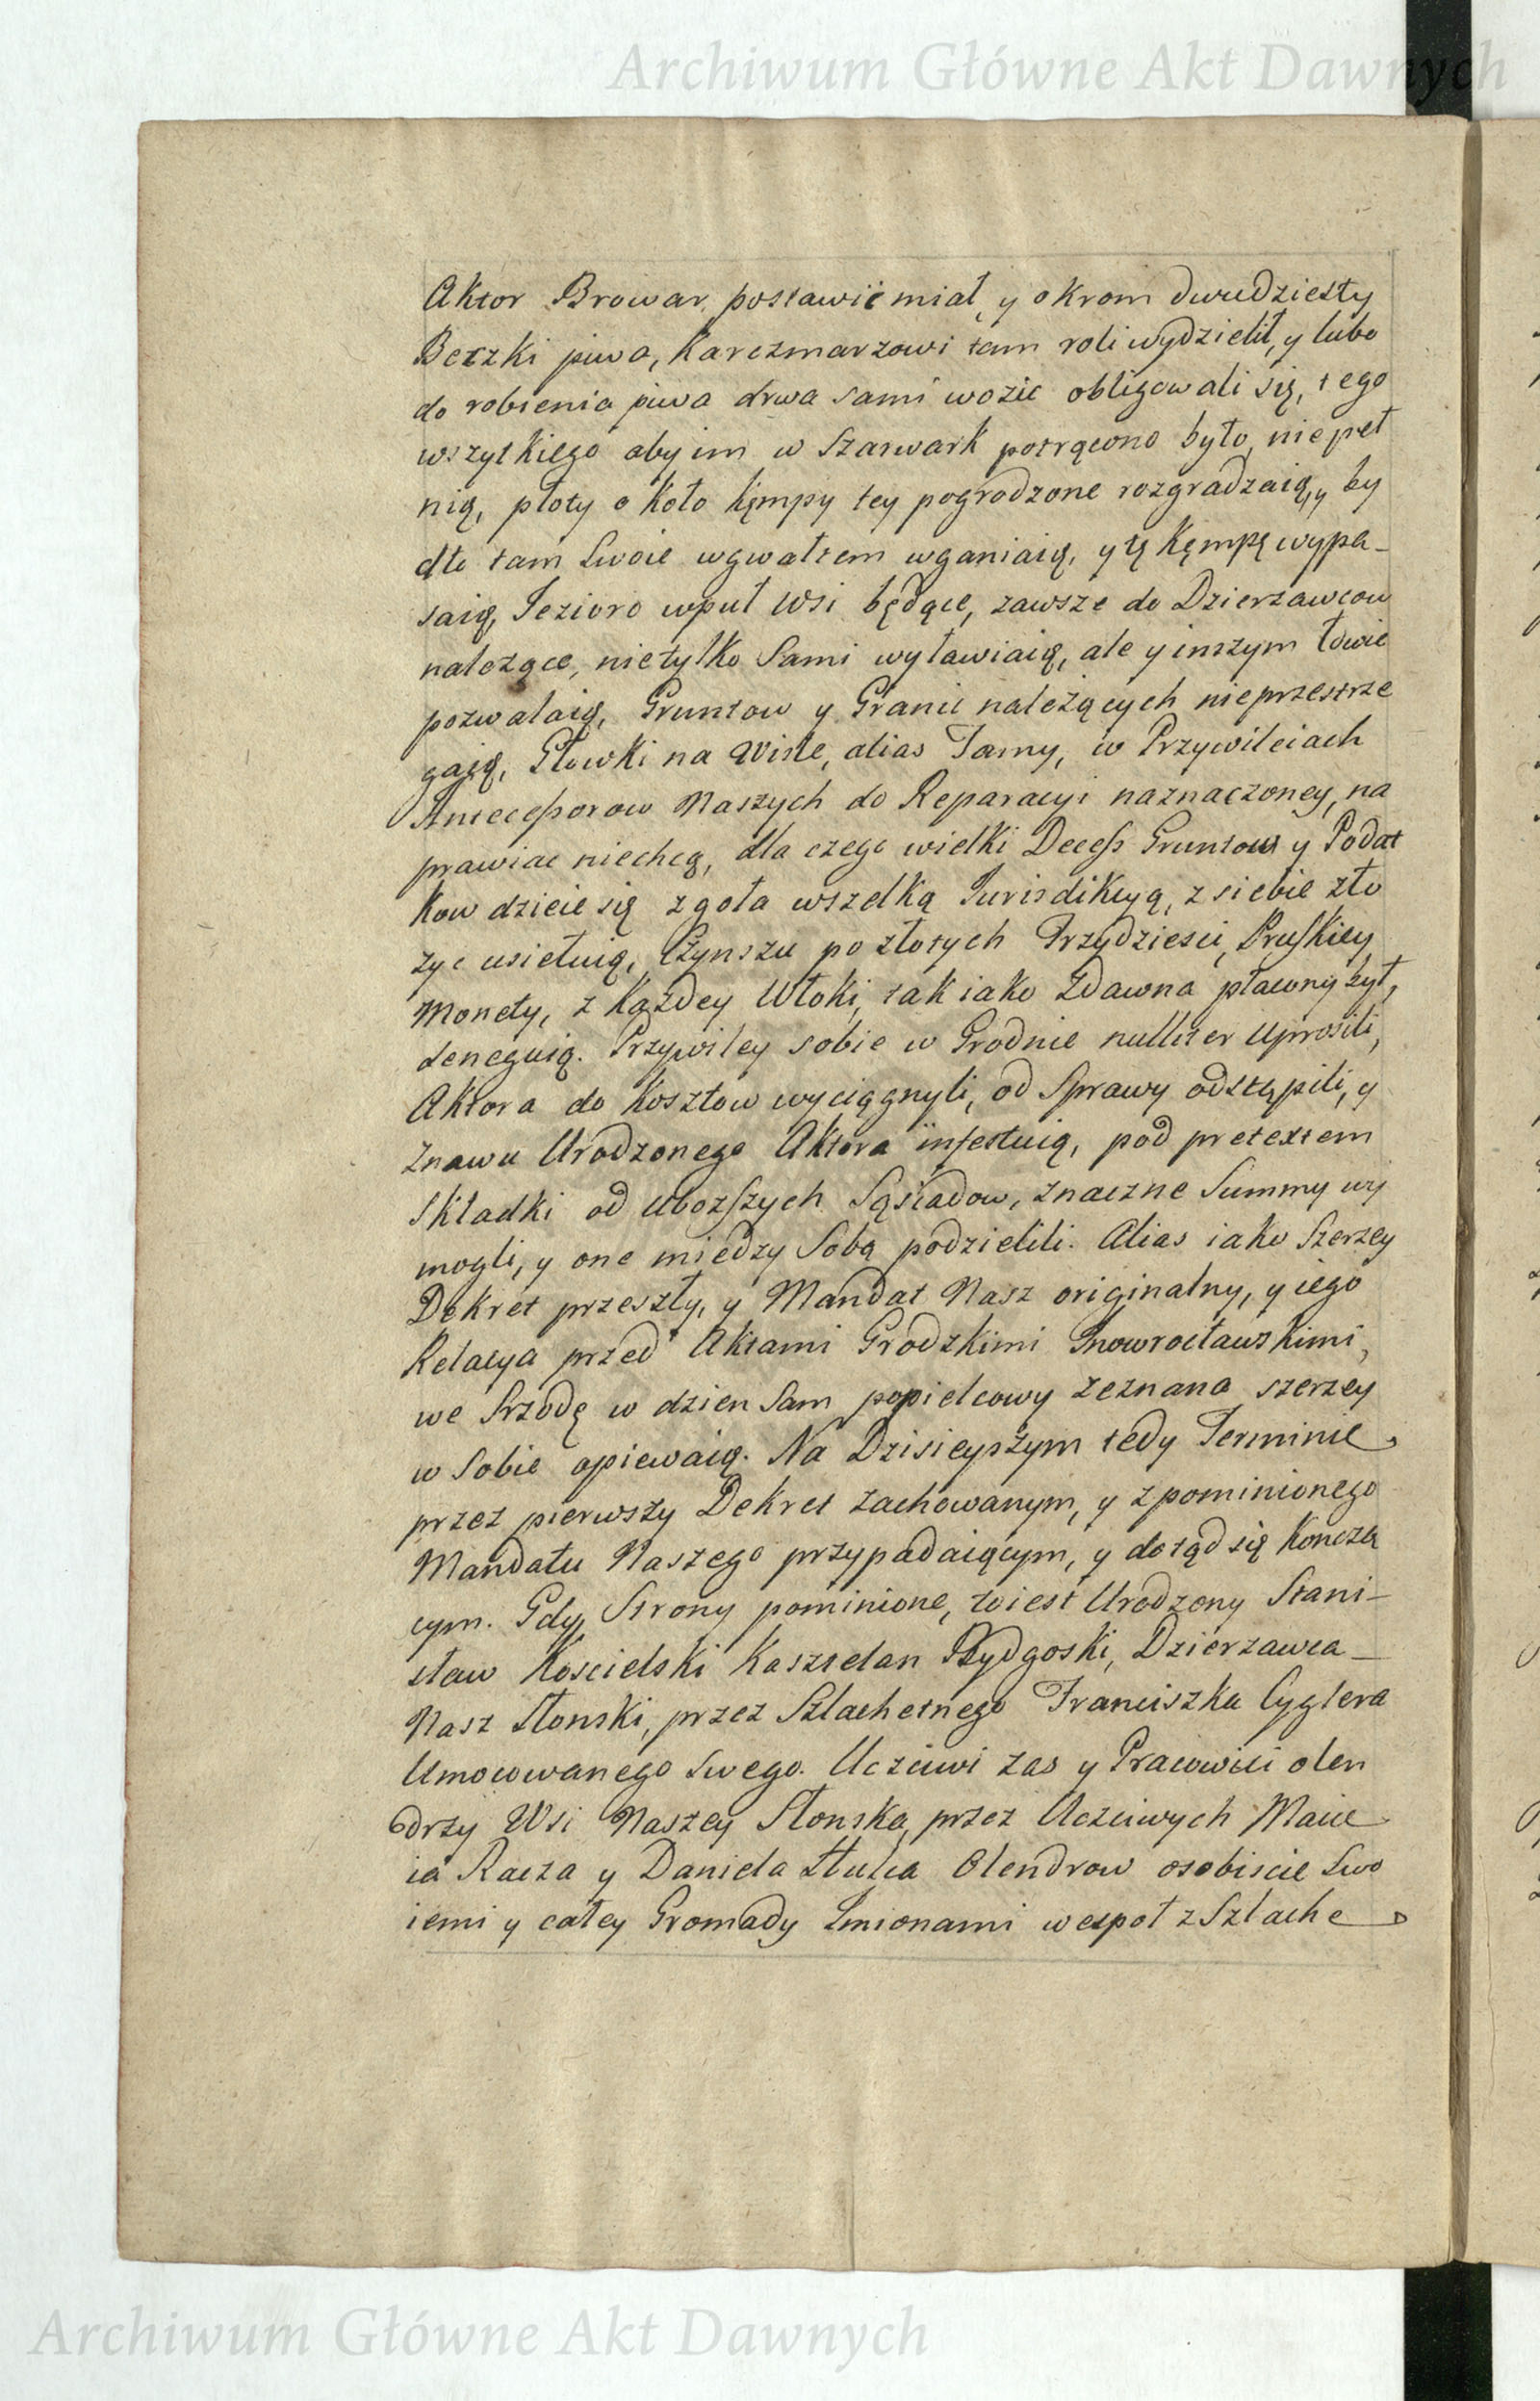 Archiwum Główne Akt Dawnych
Aktor Browar postawić miał, y okrom dwudziesty
Beczki piwa, Karczmarzowi tam roli wydzielił, y lubo
do robienia piwa drwa sami wozic obligowali się, tego
wszytkiego aby im w Szarwark potrącono było, nie peł
nią, płoty o koło Kempy tey pogrodzone rozgradzaią, y by
dło tam Swoie wgwałtem wganiaią, y tę Kępę wypa-
saią, Iezioro wpuł Wsi będące, zawsze do Dzierzawcow
nalezące, nietylko Sami wyławiaią, ale y inszym łowic
pozwalaią, Gruntow y Granic należących nieprzestrze
gaią, Główki na Wisle, alias Tamy, w Przywileiach
Antecessorow Naszych do Reparacyi naznaczoney, na
prawiac niechcą, dla czego wielki Decess Gruntow y Podat
kow dzieie się zgoła wszelką Iurisdikcyą, z siebie zło
zyc usiłuią, Czynszu po złotych Trzydziesci, Pruskiey
Monety, z Kazdey Włoki, tak iako Zdawna płacony był,
deneguią. Przywiley sobie w Grodnie nulliter Uprosili,
Aktora do Kosztow wyciągnyli, od Sprawy odstąpili, y
Znawu Urodzonego Aktora infestuią, pod pretextem
Składki od Ubozszych Sąsiadow, znaczne Summy wy
mogli, y one miedzy Sobą podzielili. Alias iako Szerzey
Dekret przeszły, y Mandat Nasz originalny, y iego
Relacya przed Aktami Grodzkimi Inowrocławskimi,
we Srzodę w dzien Sam popielcowy zeznana szerzey
w Sobie opiewaią. Na Dzisieyszym tedy Terminie
przez pierwszy Dekret zachowanym, y z pominionego
Mandatu Naszego przypadaiącym, y dotąd się Koncza
cym. Gdy Strony pominione, to iest Urodzony Stani-
sław Koscielski Kasztelan Bydgoski, Dzierzawca
Nasz Słonski, przez Szlachetnego Franciszka Cyglera
Umocowanego Swego. Uczciwi zas y Pracowici olen
drzy Wsi Naszey Słonska, przez Uczciwych Macie
ia Racza y Daniela Olendrow osobiscie Swo
iemi y całey Gromady Imionami wespoł z Szlache
Archiwum Główne Akt Dawnych